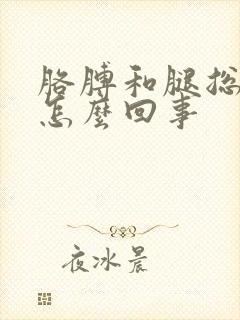 胳膊和腿总
怎麼回事
夜冰晨